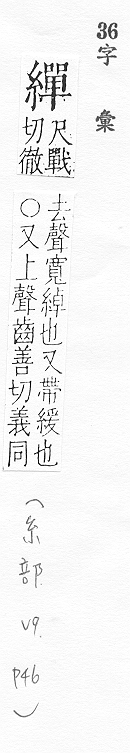 36字彙
繟
尺戰
切徹
去聲寬綽也又帶緩也
○又上聲齒善切義同
(糸部 V9 P46)